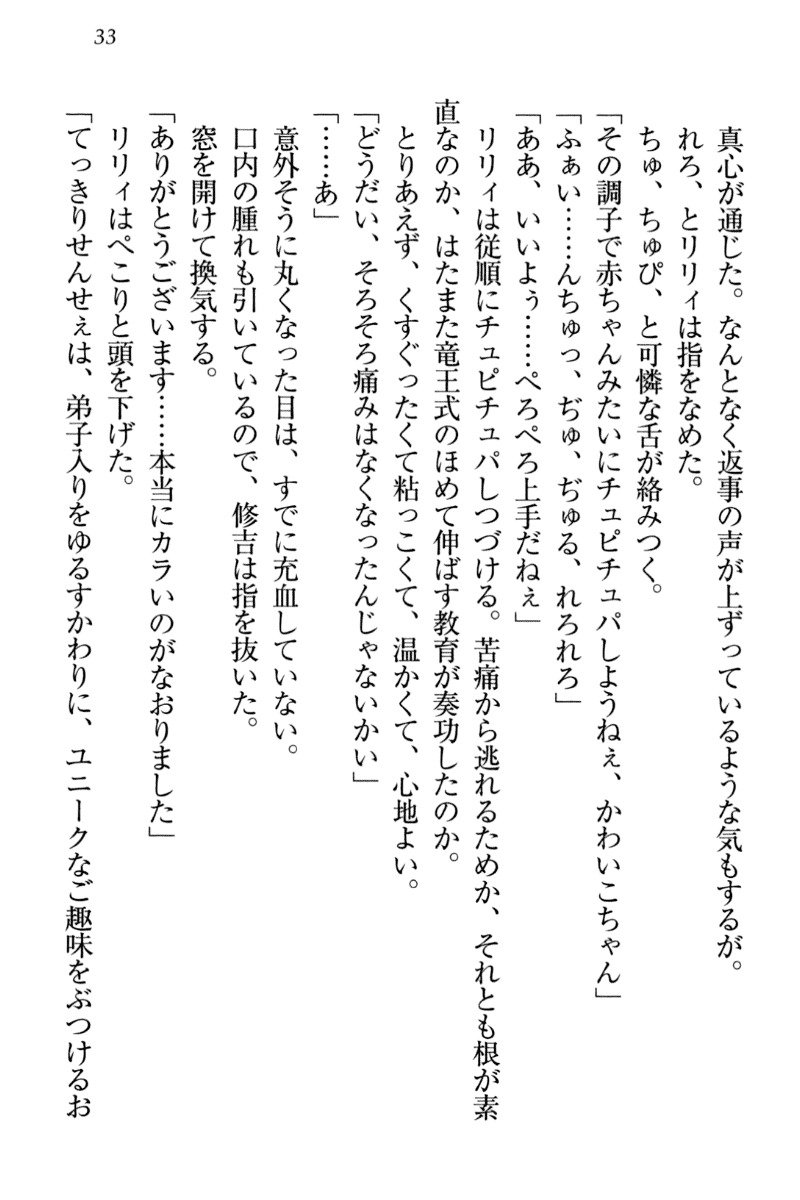 33
真心が通じた。なんとなく返事の声が上ずっているような気もするが。
れろ、とリリィは指をなめた。
ちゅ、ちゅぴ、と可憐な舌が絡みつく。
「その調子で赤ちゃんみたいにチュピチュパしようねぇ、かわいこちゃん」
「ふぁい……んちゅっ、ぢゅ、ぢゅる、れろれろ」
「ああ、いいよぅ……ぺろぺろ上手だねぇ」
リリィは従順にチュピチュパしつづける。苦痛から逃れるためか、それとも根が素
直なのか、はたまた竜王式のほめて伸ばす教育が奏功したのか。
とりあえず、くすぐったくて粘っこくて、温かくて、心地よい。
「どうだい、そろそろ痛みはなくなったんじゃないかい」
「……あ」
意外そうに丸くなった目は、すでに充血していない。
口内の腫れも引いているので、修吉は指を抜いた。
窓を開けて換気する。
「ありがとうございます……本当にカラいのがなおりました」
リリィはぺこりと頭を下げた。
「てっきりせんせぇは、弟子入りをゆるすかわりに、ユニークなご趣味をぶつけるお